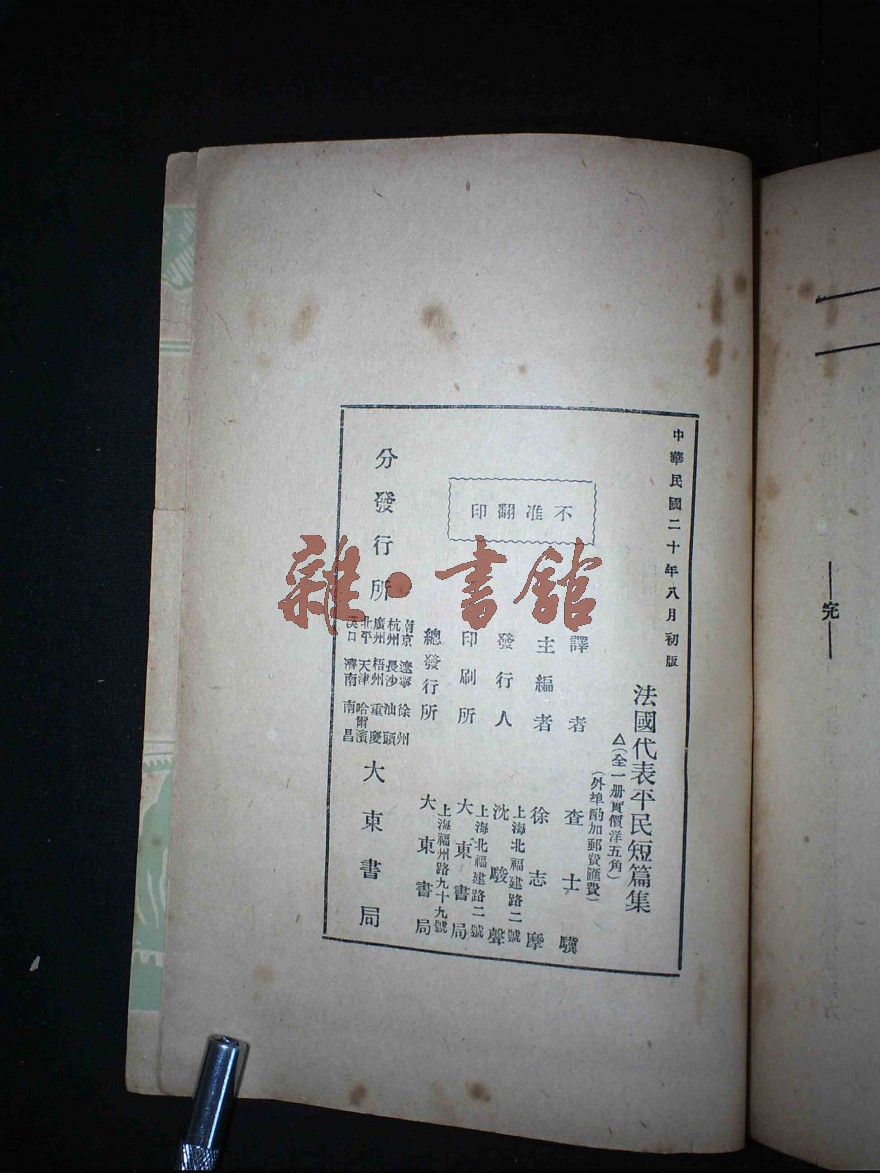 完
中華民國二十年八月初版
法國代表平民短篇集
△(全一册實價洋五角)
(外埠酌加郵費匯費)
譯者 查士驥
主編者 徐志摩
不准翻印
發行人 上海北福建路二號 沈駿聲
印刷所 上海北福建路二號 大東書局
總發行所 上海福州路九十九號 大東書局
分發行所
南京 遼寧 徐州
杭州 長沙 汕頭
廣州 梧州 重慶
北平 天津 哈爾濱
漢口 濟南 南昌
大東書局
雜·書館